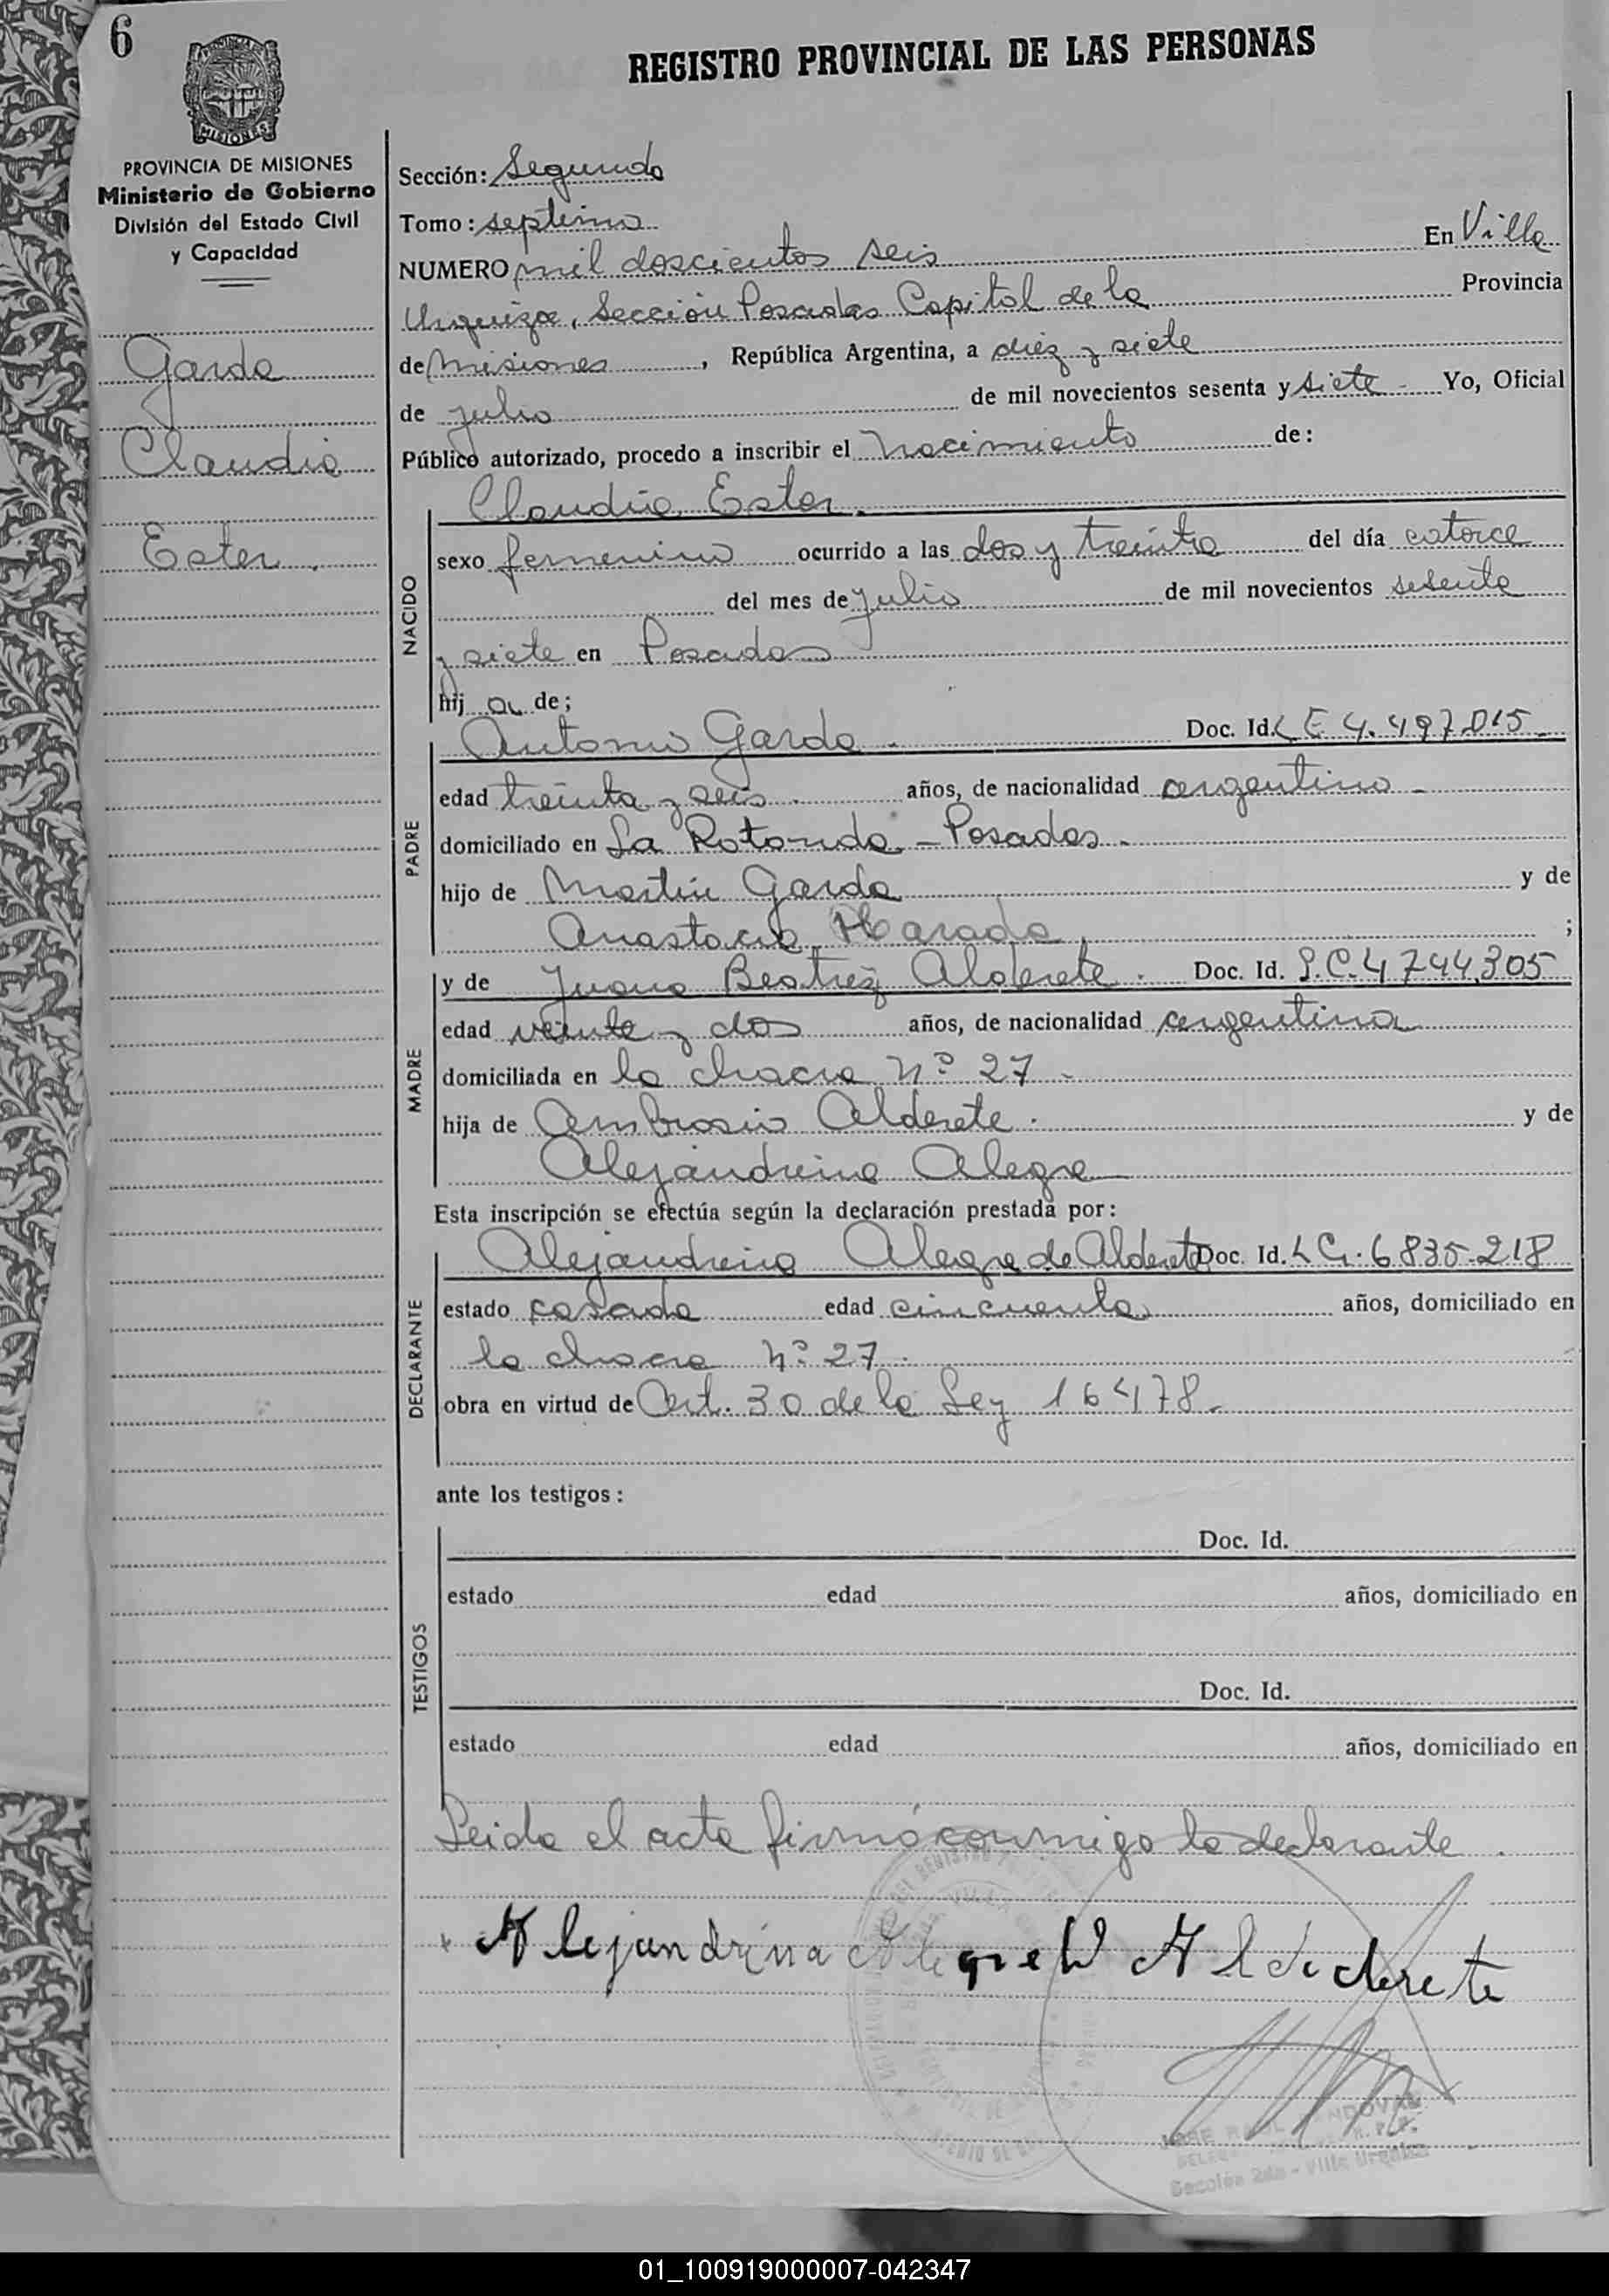 6
REGISTRO PROVINCIAL DE LAS PERSONAS
MISIONES
PROVINCIA DE MISIONES
Ministerio de Gobierno
División del Estado Civil
y Capacidad
Garda
Claudia
Ester.
Sección: Segunda
Tomo: septimo
NUMERO mil doscientos seis En Villa
Urquiza, Sección Posadas Capital de la Provincia
de Misiones, República Argentina, a diez y siete
de julio de mil novecientos sesenta y siete - Yo, Oficial
Público autorizado, procedo a inscribir el nacimiento de:
Claudia Ester.
NACIDO
sexo femenino ocurrido a las dos y treinta del día catorce
del mes de julio de mil novecientos sesenta
y siete en Posadas
hij a de;
PADRE
Antonio Garda. Doc. Id. L E 4.497.015.
edad treinta y seis. años, de nacionalidad argentino -
domiciliado en La Rotonda - Posadas -
hijo de Martin Garda y de
Anastacia ;
MADRE
y de Juana Beatriz Alderete. Doc. Id. L.C. 4744.305
edad veinte y dos años, de nacionalidad argentina
domiciliada en la chacra Nº 27 -
hija de Ambrosio Alderete. y de
Alejandrina Alegre
Esta inscripción se efectúa según la declaración prestada por:
DECLARANTE
Alejandrina Alegre de Alderete Doc. Id. L C. 6835.218
estado casada edad cincuenta años, domiciliado en
la chacra Nº 27.
obra en virtud de Art. 30 de la Ley 16478.
ante los testigos:
TESTIGOS
Doc. Id.
estado edad años, domiciliado en
Doc. Id.
estado edad años, domiciliado en
Leida el acta firmó conmigo la declarante.
Alejandrina Alegre D Aldederete
Sección 2da - Villa Urquiza
01_100919000007-042347